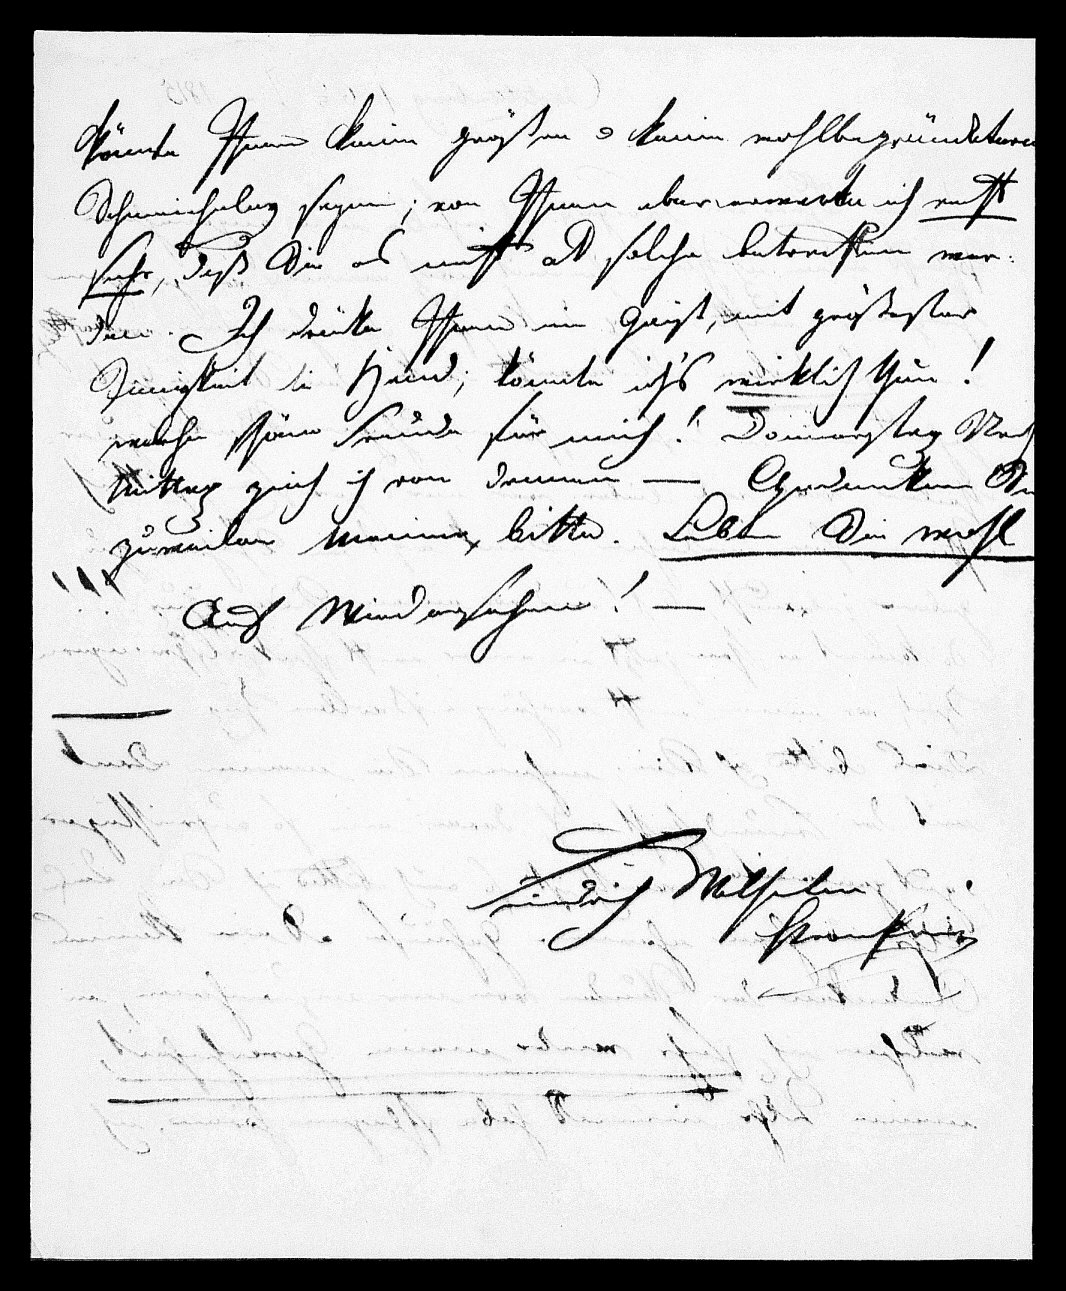 könnte Ihnen keine größere u keine wohlbegründetere
Schmeicheley sagen; von Ihnen aber erwarte ich recht
sehr, daß Sie es nicht als solche betrachten wer-
den. Ich drücke Ihnen im Geist, mit größester
Innigkeit die Hand; könnte ich's wirklich thun!
welche schöne Freude für mich! Donnerstag Nach
mittag geh ich von dannen — Gedenken Sie
zuweilen meiner, bitte. Leben Sie wohl
!!!
Auf Wiedersehen! —
Friedrich Wilhelm
Kronprinz